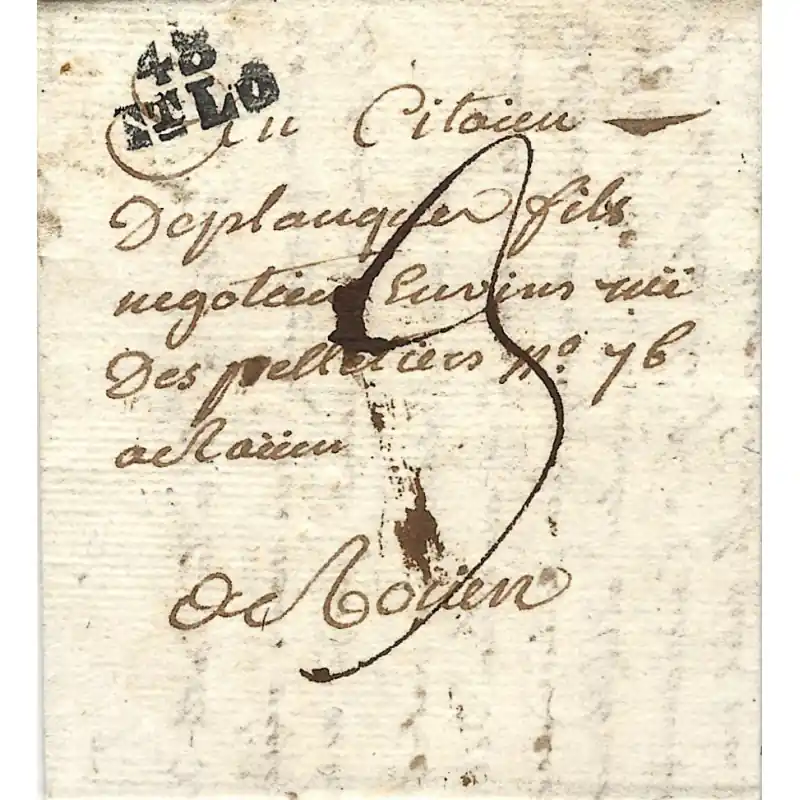 48
ST LO
Au Citoien
Deplanques fils
negotien Envins rüe
Des pelletiers n.o 76
a Roüen
a Roüen
3